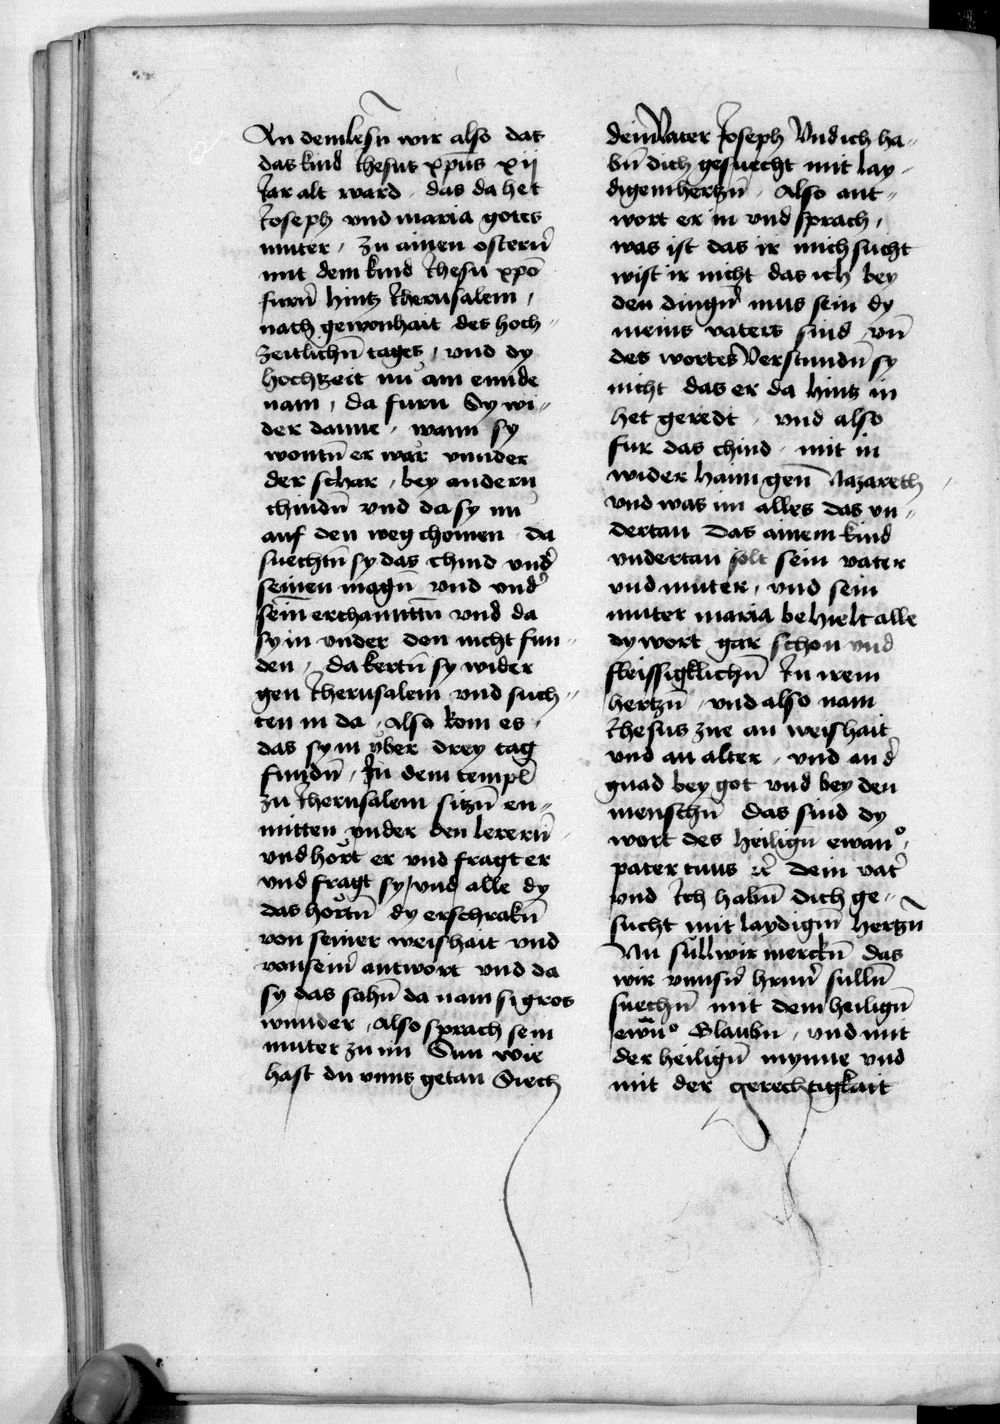 An dem lesn̄ wir also dat
das kind Ihesus xpūs xij
Jar alt ward · das da het
Joseph vnd maria gotes
muter · zu ainen ostern̄
mit dem kind Ihesu xpō
furn̄ hintz Iherusalem ·
nach gewonhait des hoch⸗
zeitlichn̄ tages · vnd dy
hochtzeit nu am ennde
nam · da furn Sy wi⸗
der danne · wann sy
wontn̄ er wär vnnder
der schar · bey andern
chindn̄ vnd da sy nu
auf den weg chomen · da
suechtn̄ sy das chind vnd̄
seinen magn̄ vnd vnd̄
sein erchanntn̄ vnd da
sy in vnder den nicht fun⸗
den · da kertn̄ sy wider
gen Iherusalem vnd such⸗
ten in da · Also kom es ·
das sy in vber drey tag
fundn̄ · In dem templ̄
zu Iherusalem sitzn̄ en⸗
mitten vnder den lerern̄
vnd hort er vnd fragt er
vnd fragt sy / vnd alle dy
das hortn̄ dy erschrakn̄
von seiner weishait vnd
von sein̄ antwort vnd da
sy das sahn̄ da nam si gros
wunder · Also sprach sein
muter zu im Sun wie
hast du vnns getan Siech
dein Vater Joseph Vnd ich ha⸗
bn̄ dich gesuecht mit lay⸗
digem hertzn̄ · Also ant⸗
wort er in vnd sprach ·
was ist das ir mich sucht
wist ir nicht das ich bey
den dingn̄ mus sein dy
meins vaters sind vn̄
des wortes Verstundn̄ sy
nicht das er da hintz in
het geredt · vnd also
fur das chind · mit in
wider haim gen̄ Nazareth
vnd was im alles das vn⸗
dertan Das ainem kind
vndertan solt sein vater
vnd muter · vnd sein
muter maria behielt alle
dy wort gar schon vnd
fleissigklichn̄ In irem
hertzn̄ · vnd also nam
Ihesus zue an weishait
vnd an alter · vnd an d̄
gnad bey got vnd bey den
menschn̄ Das sind dy
wort des heilign̄ ewanᵒ ·
pater tuus ⁊c̄ dein vat̄
vnd Ich habn̄ dich ge⸗
sucht mit laydigm̄ hertzn̄
Nu sull wir merckn̄ das
wir vnnsn̄ hrnn̄ sulln̄
suechn̄ mit dem heilign̄
ewn̄ᵒ Glaubn · vnd mit
der heilign̄ mynne vnd
mit der gerechtigkait